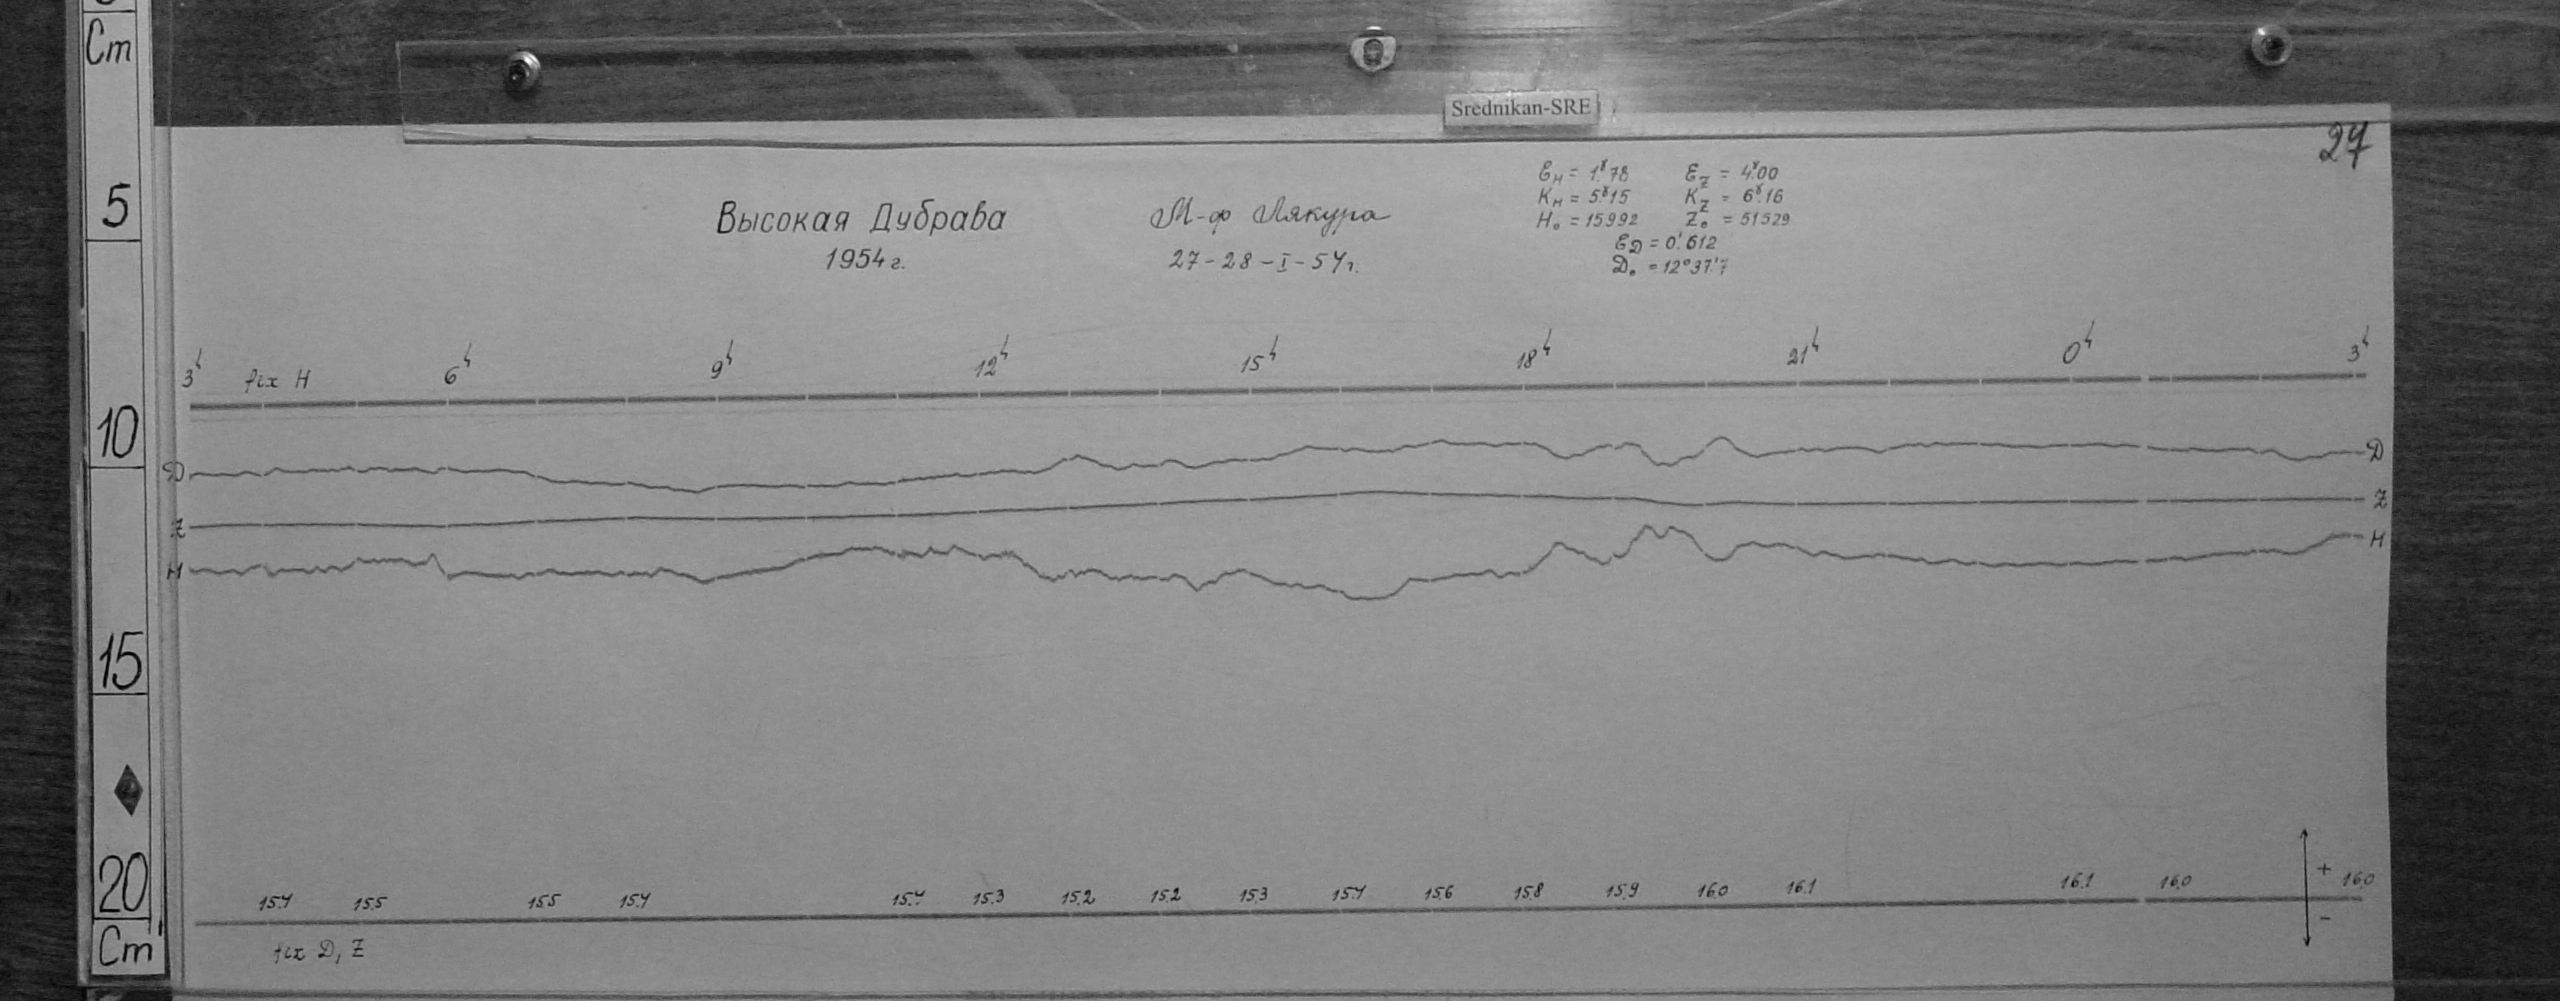 Cm
5
10
15
20
Cm
Srednikan-SRE
27
Высокая Дубрава
1954 г.
М-ф Лякура
27-28-I-54г.
Ɛ_H = 1ˠ.78 Ɛ_Z = 4ˠ.00
K_H = 5ˠ.15 K_Z = 6ˠ.16
H₀ = 15992 Z₀ = 51529
Ɛ_D = 0'.612
D₀ = 12°37'.7
3ʰ 6ʰ 9ʰ 12ʰ 15ʰ 18ʰ 21ʰ 0ʰ 3ʰ
fix H
D D
Z Z
H H
15.4 15.5 15.5 15.4 15.4 15.3 15.2 15.2 15.3 15.4 15.6 15.8 15.9 16.0 16.1 16.1 16.0 16.0
+
-
fix D, Z